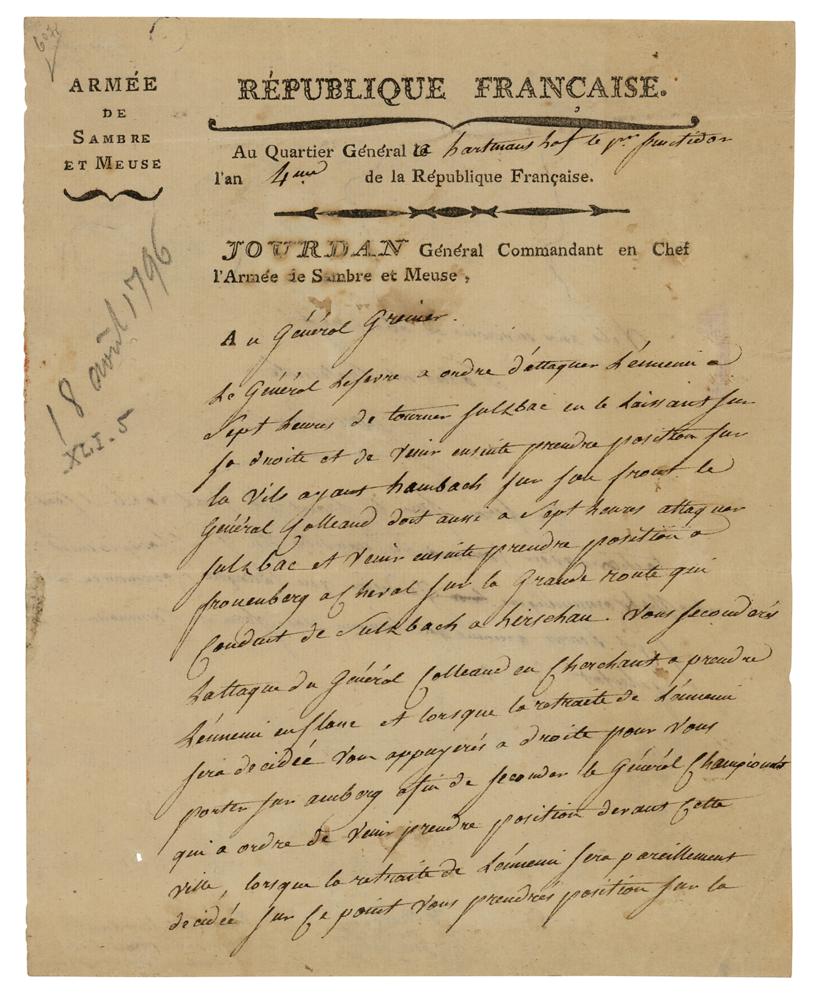 ARMÉE
DE
SAMBRE
ET MEUSE
RÉPUBLIQUE FRANÇAISE.
Au Quartier Général à hartmanshof le 1er fructidor
l'an 4eme de la République Française.
JOURDAN Général Commandant en Chef
l'Armée de Sambre et Meuse,
18 août 1796
XLI. 5
Au Général Grenier.
Le Général Lefevre a ordre d'attaquer l'ennemi a
Sept heures de tourner Sulzbac en le Laissant sur
sa droite et de Venir ensuite prendre position sur
la Vils ayant hambach sur son front le
Général Colleaud doit aussi a Sept heures attaquer
Sulzbac et Venir ensuite prendre position a
fronenberg a Cheval sur la Grande route qui
Conduit de Sulzbach a hirschau. Vous seconderés
Lattaque du Général Colleaud en Cherchant a prendre
L'ennemi en flanc et lorsque la retraite de L'ennemi
sera decidée Vous appuyerés a droite pour Vous
porter sur amberg afin de seconder le Général Championnet
qui a ordre de Venir prendre position devant Cette
ville, lorsque la retraite de L'ennemi sera pareillement
decidée sur Ce point Vous prendrés position sur la